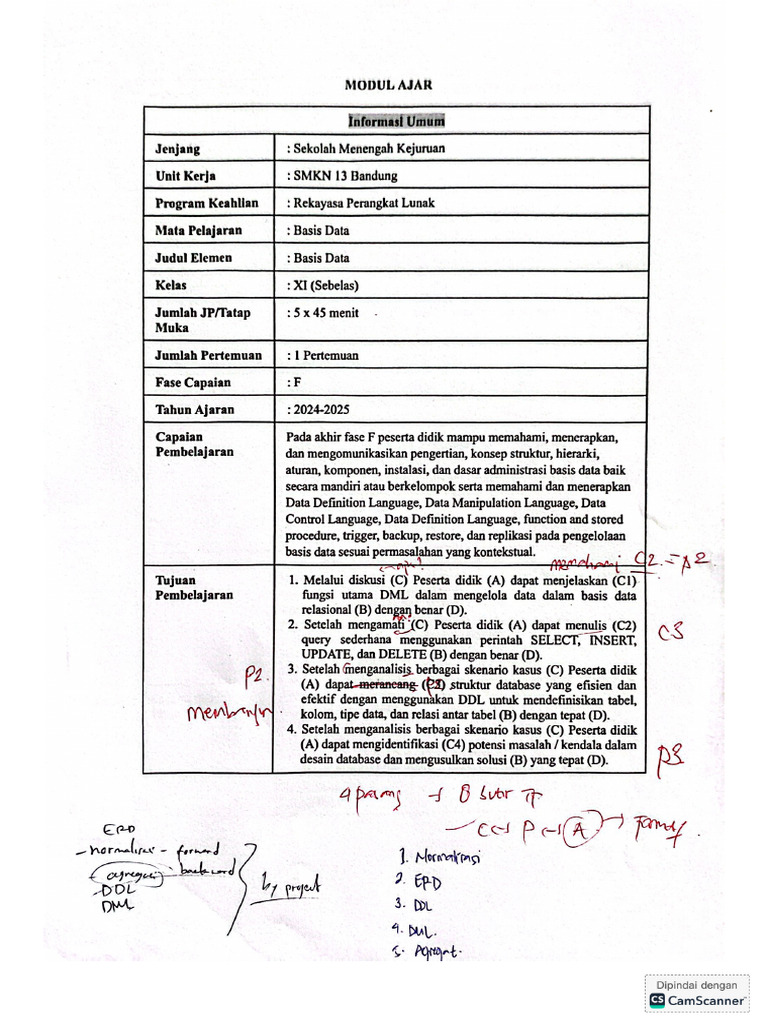 MODUL AJAR
Informasi Umum
Jenjang : Sekolah Menengah Kejuruan
Unit Kerja : SMKN 13 Bandung
Program Keahlian : Rekayasa Perangkat Lunak
Mata Pelajaran : Basis Data
Judul Elemen : Basis Data
Kelas : XI (Sebelas)
Jumlah JP/Tatap : 5 x 45 menit
Muka
Jumlah Pertemuan : 1 Pertemuan
Fase Capaian : F
Tahun Ajaran : 2024-2025
Capaian Pada akhir fase F peserta didik mampu memahami, menerapkan,
Pembelajaran dan mengomunikasikan pengertian, konsep struktur, hierarki,
aturan, komponen, instalasi, dan dasar administrasi basis data baik
secara mandiri atau berkelompok serta memahami dan menerapkan
Data Definition Language, Data Manipulation Language, Data
Control Language, Data Definition Language, function and stored
procedure, trigger, backup, restore, dan replikasi pada pengelolaan
basis data sesuai permasalahan yang kontekstual.
memahami C2 = P2
Tujuan 1. Melalui diskusi (C) Peserta didik (A) dapat menjelaskan (C1)
Pembelajaran fungsi utama DML dalam mengelola data dalam basis data
relasional (B) dengan benar (D).
2. Setelah mengamati (C) Peserta didik (A) dapat menulis (C2)
C3
query sederhana menggunakan perintah SELECT, INSERT,
UPDATE, dan DELETE (B) dengan benar (D).
3. Setelah menganalisis berbagai skenario kasus (C) Peserta didik
P2.
(A) dapat merancang (P3) struktur database yang efisien dan
efektif dengan menggunakan DDL untuk mendefinisikan tabel,
kolom, tipe data, dan relasi antar tabel (B) dengan tepat (D).
4. Setelah menganalisis berbagai skenario kasus (C) Peserta didik
(A) dapat mengidentifikasi (C4) potensi masalah / kendala dalam
desain database dan mengusulkan solusi (B) yang tepat (D).
P3
ERD
forward
backward
DDL
DML
by project
1. Normalisasi
2. ERD
3. DDL
4. DML.
5. Agregat.
Dipindai dengan
CS CamScanner